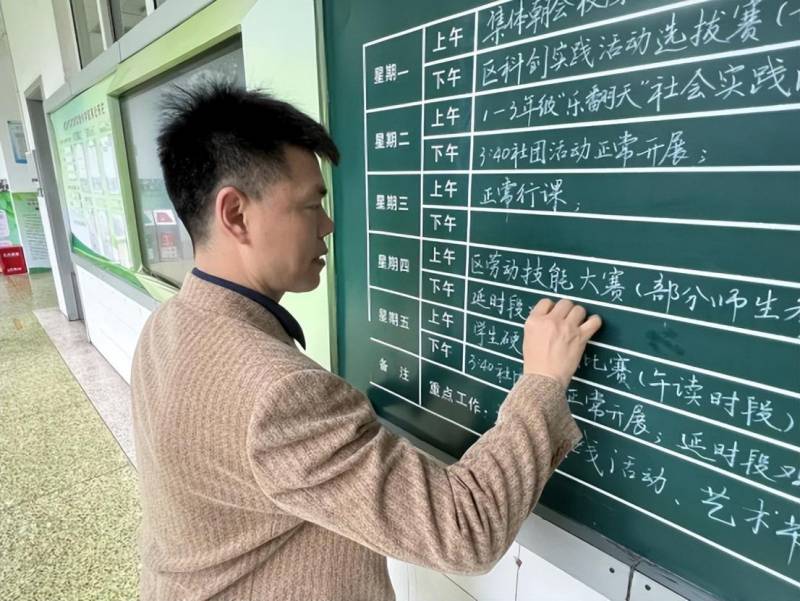 星期一 上午 集体朝会
下午 区科创实践活动选拔赛(
星期二 上午 1-3年级"乐翻天"社会实践
下午 3:40社团活动正常开展;
星期三 上午 正常行课;
下午
星期四 上午 区劳动技能大赛(部分师生
下午 延时段
星期五 上午 学生硬 比赛(午读时段)
下午 3:40社团 正常开展; 延时段
备注 重点工作: 践活动、艺术节